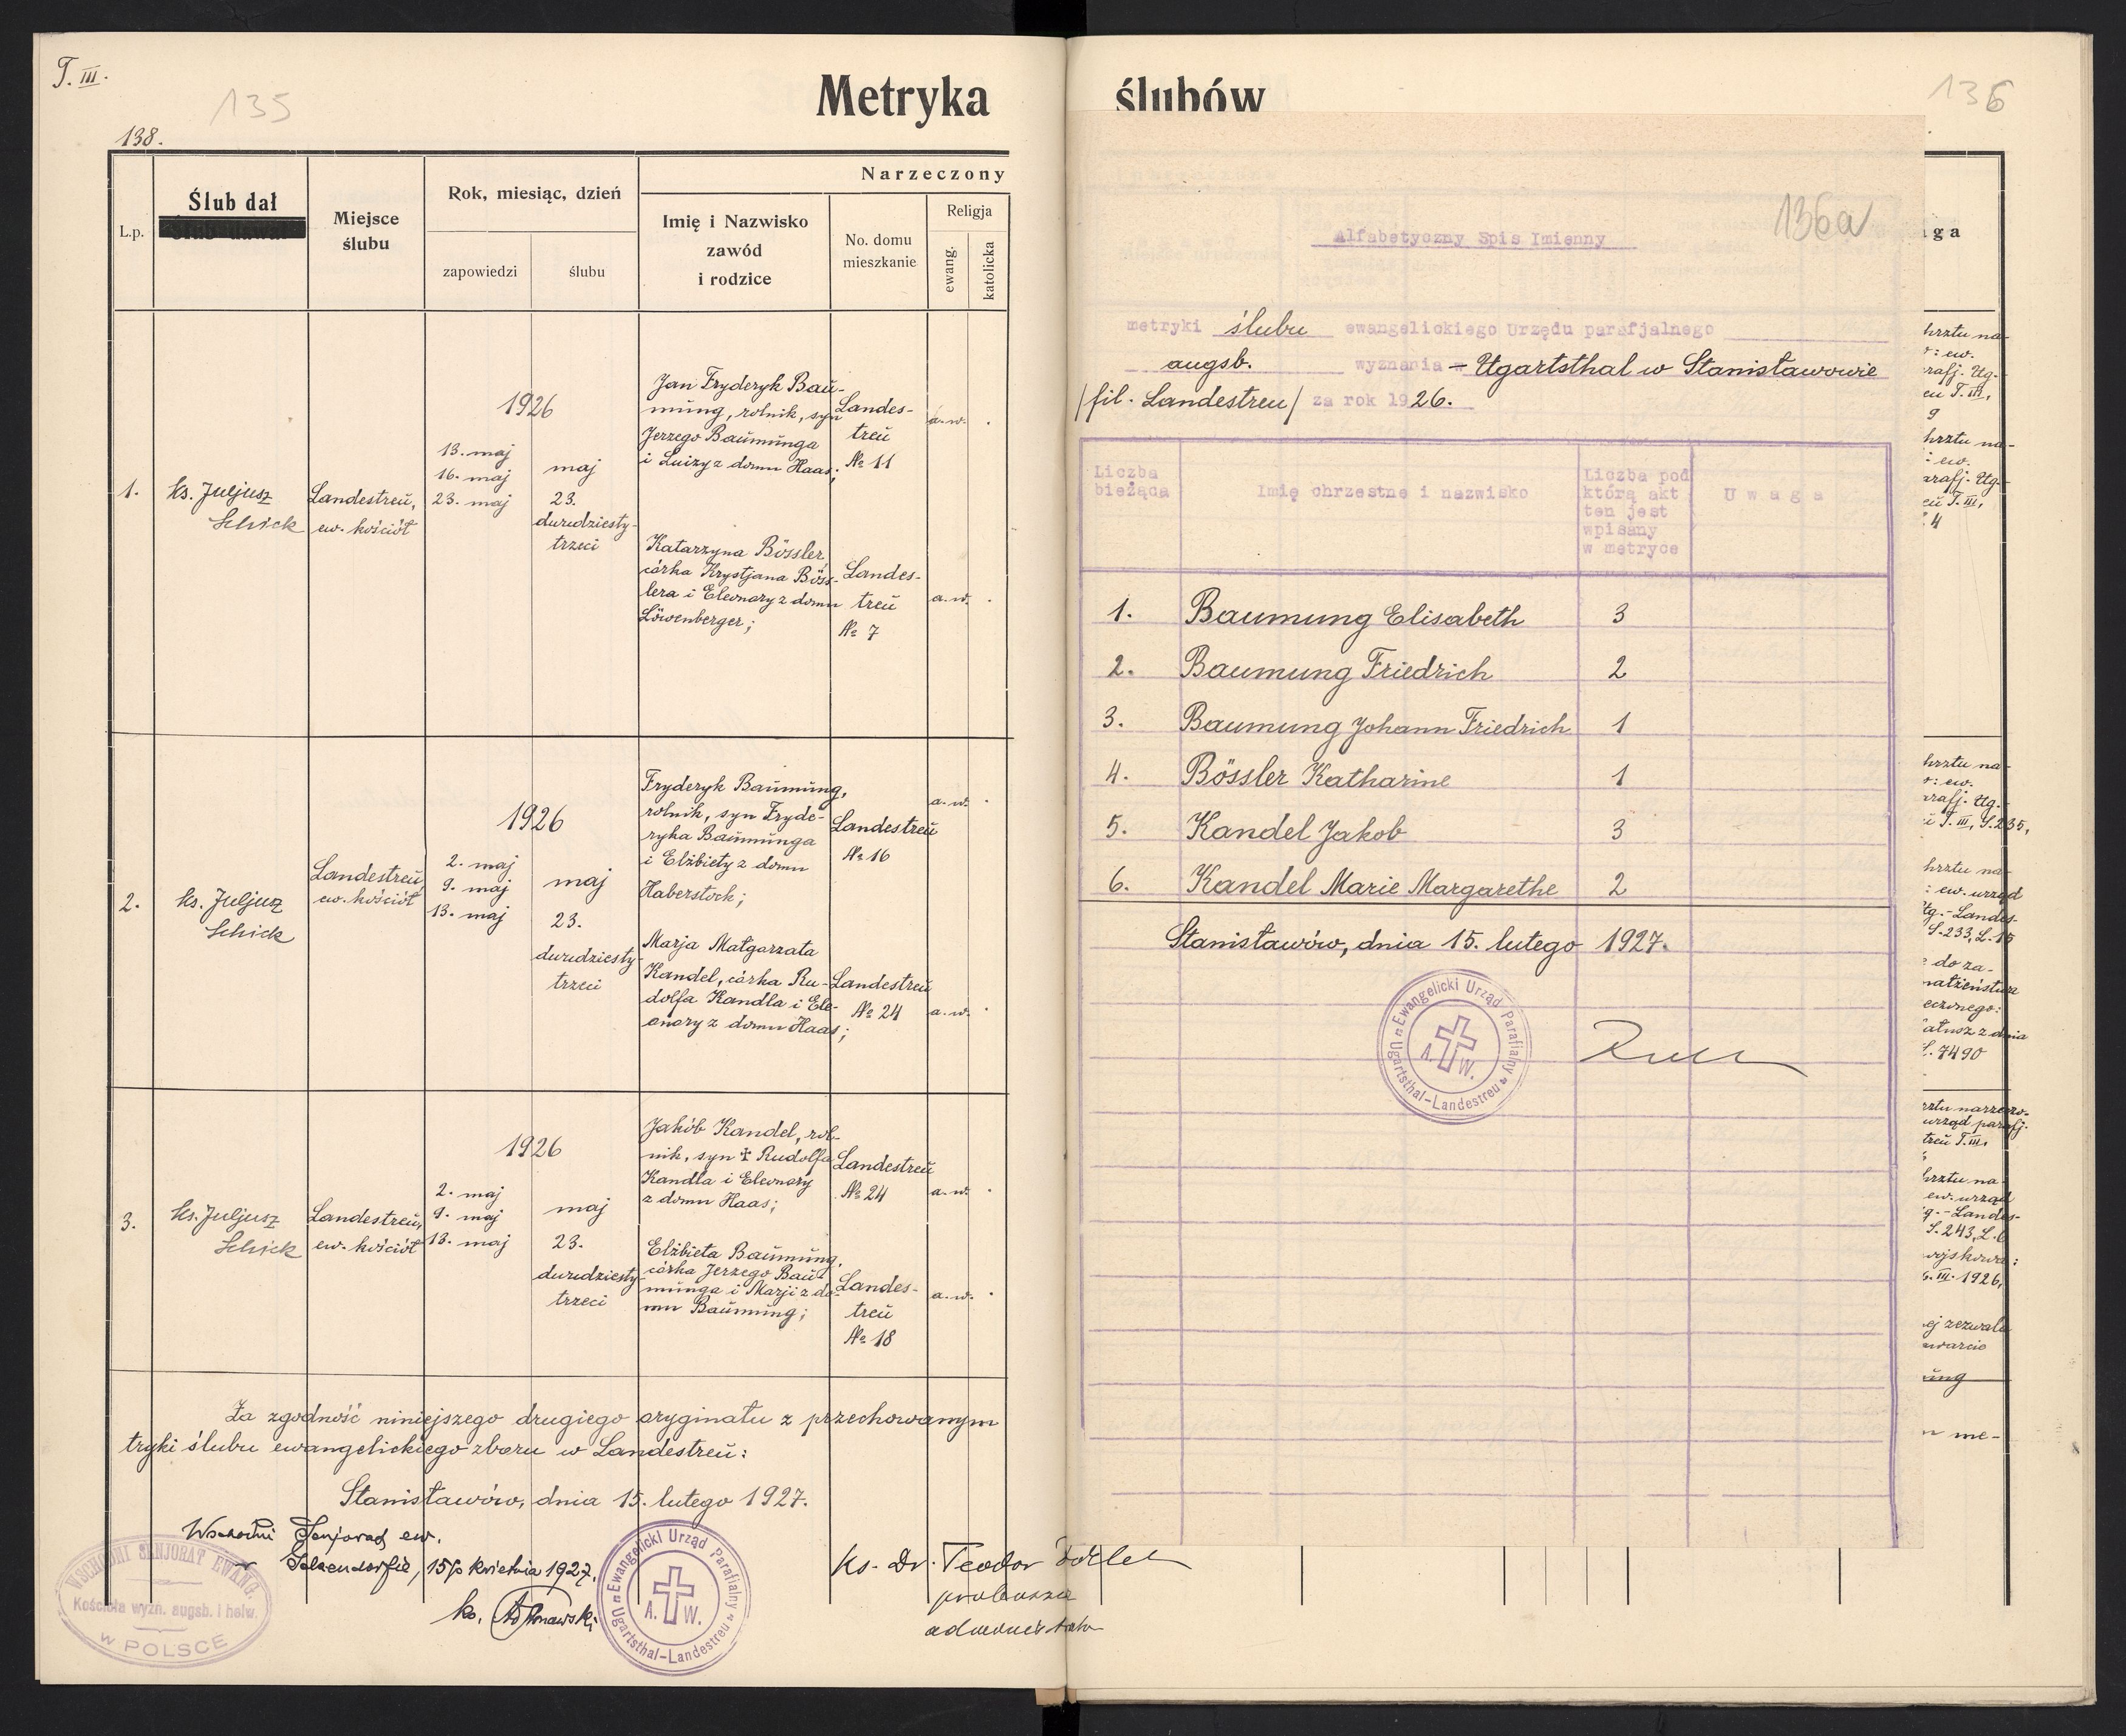 T. III.
135
138.
Metryka
L.p.
Ślub dał
Miejsce
ślubu
Rok, miesiąc, dzień
zapowiedzi
ślubu
Narzeczony
Imię i Nazwisko
zawód
i rodzice
No. domu
mieszkanie
Religja
ewang.
katolicka
1.
ks. Juljusz
Schick
Landestreŭ,
ew. kościół
1926
13. maj
16. maj
23. maj
maj
23.
dwudziesty-
trzeci
Jan Fryderyk Baŭ-
mŭng, rolnik, syn
Jerzego Baŭmŭnga
i Luizy z domu Haas;
Landes-
treŭ
№ 11
a.w.
Katarzyna Bössler,
córka Krystjana Böss-
lera i Eleonory z domu
Löwenberger;
Landes-
treŭ
№ 7
a.w.
2.
ks. Juljusz
Schick
Landestreŭ,
ew. kościół
1926
2. maj
9. maj
13. maj
maj
23.
dwudziesty-
trzeci
Fryderyk Baŭmŭng,
rolnik, syn Fryde-
ryka Baŭmŭnga
i Elżbiety z domu
Haberstock;
Landestreŭ
№ 16
a.w.
Marja Małgorzata
Kandel, córka Ru-
dolfa Kandla i Ele-
onory z domu Haas;
Landestreŭ
№ 24
a.w.
3.
ks. Juljusz
Schick
Landestreŭ,
ew. kościół
1926
2. maj
9. maj
13. maj
maj
23.
dwudziesty-
trzeci
Jakób Kandel, rol-
nik, syn ✝ Rudolfa
Kandla i Eleonory
z domu Haas;
Landestreŭ
№ 24
a.w.
Elżbieta Baŭmŭng,
córka Jerzego Baŭ-
mŭnga i Marji z do-
mu Baŭmŭng;
Landes-
treŭ
№ 18
a.w.
Za zgodność niniejszego drugiego oryginału z przechowanym
tryki ślubu ewangelickiego zboru w Landestreŭ:
Stanisławów, dnia 15. lutego 1927.
Wschodni Senjorat ew.
w Gelsendorfie, 15/IV kwietnia 1927.
ks.
WSCHODNI SENJORAT EWANG.
Kościoła wyzn. augsb. i helw.
w POLSCE
Ewangelicki Urząd Parafialny w Ugartsthal-Landestreu
A. W.
ks. Dr. Teodor
proboszcz
administrator
ślubów
136
136a
Alfabetyczny Spis Imienny
metryki ślubu ewangelickiego Urzędu parafjalnego
augsb. wyznania - Ugartsthal w Stanisławowie
/fil. Landestreu/ za rok 1926.
Liczba
bieżąca
Imię chrzestne i nazwisko
Liczba pod
którą akt
ten jest
wpisany
w metryce
Uwaga
1. Baumung Elisabeth 3
2. Baumung Friedrich 2
3. Baumung Johann Friedrich 1
4. Bössler Katharine 1
5. Kandel Jakob 3
6. Kandel Marie Margarethe 2
Stanisławów, dnia 15. lutego 1927.
Ewangelicki Urząd Parafialny w Ugartsthal-Landestreu
A. W.